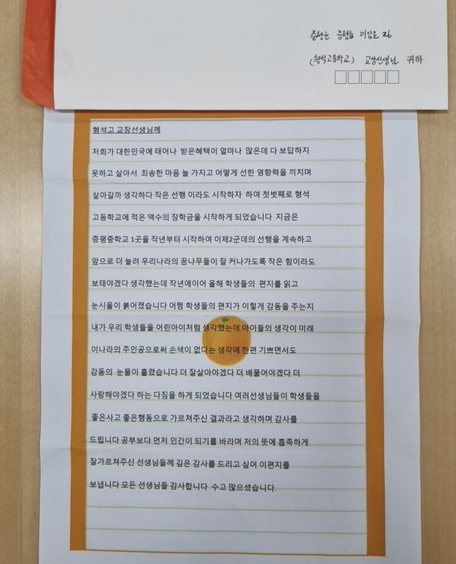 증평군 증평읍 미암로 26
(형석고등학교) 교장선생님 귀하
형석고 교장선생님께
저희가 대한민국에 태어나 받은혜택이 얼마나 많은데 다 보답하지
못하고 살아서 죄송한 마음 늘 가지고 어떻게 선한 영향력을 끼치며
살아갈까 생각하다 작은 선행 이라도 시작하자 하여 첫번째로 형석
고등학교에 적은 액수의 장학금을 시작하게 되었습니다 지금은
증평중학교 1곳을 작년부터 시작하여 이제2군데의 선행을 계속하고
앞으로 더 늘려 우리나라의 꿈나무들이 잘 커나가도록 작은 힘이라도
보태야겠다 생각했는데 작년에이어 올해 학생들의 편지를 읽고
눈시울이 붉어졌습니다 어쩜 학생들의 편지가 이렇게 감동을 주는지
내가 우리 학생들을 어린아이처럼 생각했는데 아이들의 생각이 미래
이나라의 주인공으로써 손색이 없다는 생각에 한편 기쁘면서도
감동의 눈물이 흘렸습니다 더 잘살아야겠다 더 베풀어야겠다 더
사랑해야겠다 하는 다짐을 하게 되었습니다 여러선생님들이 학생들을
좋은사고 좋은행동으로 가르쳐주신 결과라고 생각하며 감사를
드립니다 공부보다 먼저 인간이 되기를 바라며 저의 뜻에 흡족하게
잘가르쳐주신 선생님들께 깊은 감사를 드리고 싶어 이편지를
보냅니다 모든 선생님들 감사합니다 수고 많으셨습니다.